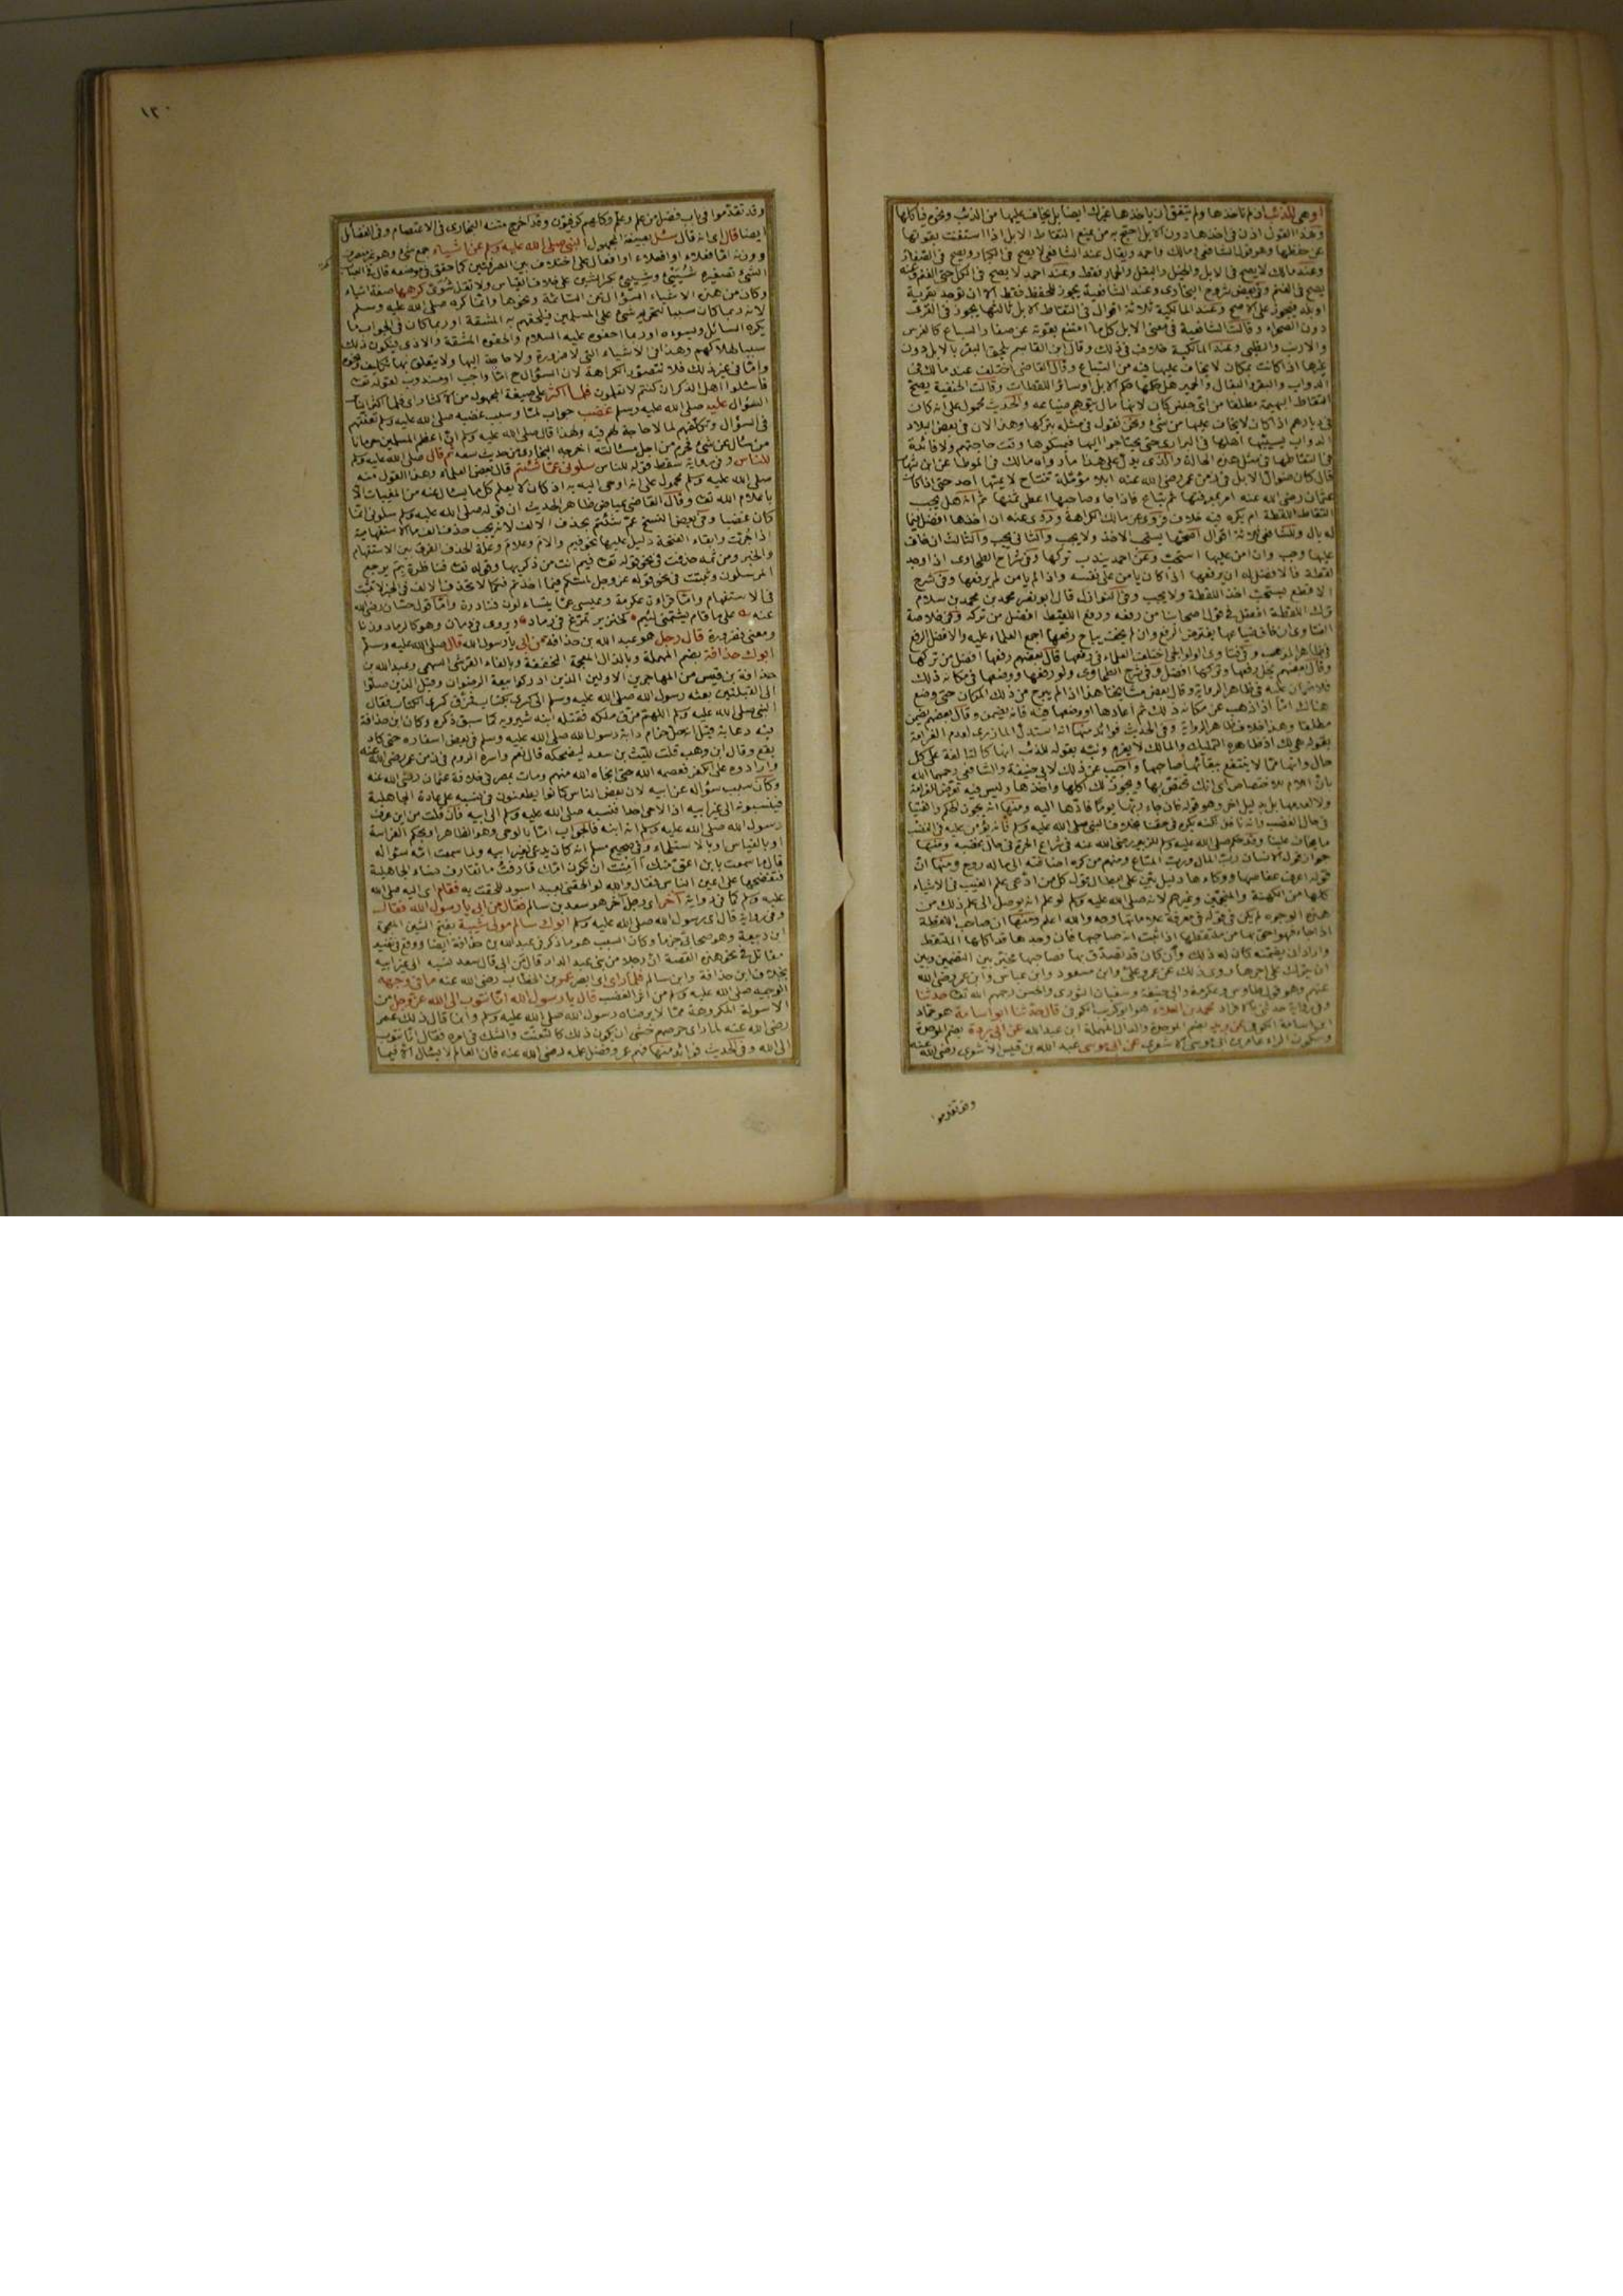 او هى للذئب ان لم تأخذها ولم يتفق ان يأخذها غيرك ايضا بل يخاف عليها من الذئب ونحوه فيأكلها
وهذا القول اذن فى اخذها دون الابل احتج به من يمنع التقاط الابل اذا استغنت بقوتها
عن حفظها وهو قول الشافعى ومالك واحمد ويقال عند الشافعى لا يصح فى الكبار ويصح فى الصغار
وعند مالك لا يصح فى الابل والخيل والبغل والحمار فقط وعند احمد لا يصح فى الكل حتى الغنم
يصح فى الغنم وفى بعض شروح البخارى وعند الشافعية يجوز للحفظ فقط الا ان يوجد بقرية
او بلد فيجوز على الاصح وعند المالكية ثلاثة اقوال فى التقاط الابل ثالثها يجوز فى القرى
دون الصحراء وقالت الشافعية فى معنى الابل كل ما امتنع بقوته عن صغار السباع كالفرس
والارنب والظبى وعند المالكية خلاف فى ذلك وقال ابن القاسم يلحق البقر بالابل دون
غيرها اذا كانت بمكان لا يخاف عليها فيه من السباع وقال القاضى اختلف عند مالك فى
الدواب والبقر والبغال والحمير هل حكمها حكم الابل او سائر اللقطات وقالت الحنفية يصح
التقاط البهيمة مطلقا من اى جنس كان لانها مال يتوهم ضياعه والحديث محمول على ما كان
فى ديارهم اذ كان لا يخاف عليها من شئ ونحن نقول فى مثله بتركها وهذا لان فى بعض البلاد
الدواب يسيبها اهلها فى البرارى حتى يحتاجوا اليها فيمسكوها وقت حاجتهم ولا فائدة
فى التقاطها فى مثل هذه الحالة والذى يدل على هذا ما رواه مالك فى الموطأ عن ابن شهاب
قال كان ضوال الابل فى زمن عمر رضى الله عنه ابلا مؤبلة تتناتج لا يمسها احد حتى اذا كان
عثمان رضى الله عنه امر بمعرفتها ثم تباع فاذا جاء صاحبها اعطى ثمنها ثم انه هل يجب
التقاط اللقطة ام يكره فيه خلاف فروى عن مالك الكراهة وروى عنه ان اخذها افضل فيما
له بال وللشافعى ثلاثة اقوال اصحها يستحب الاخذ ولا يجب والثانى يجب والثالث ان خاف
عليها وجب وان امن عليها استحب وعن احمد يندب تركها وفى شرح الطحاوى اذا وجد
لقطة فالافضل له ان يرفعها اذا كان يأمن على نفسه واذا لم يأمن لم يرفعها وفى شرح
الاقطع يستحب اخذ اللقطة ولا يجب وفى النوازل قال ابو نصر محمد بن محمد بن سلام
ترك اللقطة افضل فى قول اصحابنا من رفعه ورفع اللقيط افضل من تركه وفى خلاصة
الفتاوى ان خاف ضياعها يفترض الرفع وان لم يخف يباح رفعها اجمع العلماء عليه والافضل الرفع
فى ظاهر المذهب وفى فتاوى الولوالجى اختلف العلماء فى رفعها قال بعضهم رفعها افضل من تركها
وقال بعضهم يحل رفعها وتركها افضل وفى شرح الطحاوى ولو رفعها ووضعها فى مكانه ذلك
فلا ضمان عليه فى ظاهر الرواية وقال بعض مشايخنا هذا اذا لم يبرح من ذلك المكان حتى وضع
هناك اما اذا ذهب عن مكانه ذلك ثم اعادها ووضعها فيه فانه يضمن وقال بعضهم يضمن
مطلقا وهذا خلاف ظاهر الرواية وفى الحديث فوائد منها انه استدل المازرى لعدم الغرامة
بقوله هى لك اذ ظاهره التمليك والمالك لا يغرم ونبه بقوله للذئب انها كالتالفة على كل
حال وانها مما لا ينتفع ببقائها صاحبها واجيب عن ذلك لابى حنيفة والشافعى رحمهما الله
بان اللام للاختصاص اى انك تختص بها ويجوز لك اكلها واخذها وليس فيه تعرض للغرامة
ولا لعدمها بل بدليل اخر وهو قوله فان جاء ربها يوما فادها اليه ومنها انه يجوز للحكم والفتيا
فى حال الغضب وانه نافذ لكنه يكره فى حقنا بخلاف النبى صلى الله عليه وسلم فانه يؤمن عليه فى الغضب
ما يخاف علينا وقد حكم صلى الله عليه وسلم للزبير رضى الله عنه فى شراج الحرة فى حال غضبه ومنها
جواز قول الانسان رب المال ورب المتاع ومنهم من كره اضافته الى ما له روح ومنها ان
قوله اعرف عفاصها ووكاءها دليل بين على ابطال قول كل من ادعى علم الغيب فى الاشياء
كلها من الكهنة والمنجمين وغيرهم لانه صلى الله عليه وسلم لو علم انه يوصل الى علم ذلك من
هذه الوجوه لم يكن فى قوله فى معرفة علاماتها وجه والله اعلم ومنها ان صاحب اللقطة
اذا جاء فهو احق بها من ملتقطها اذا ثبت انه صاحبها فان وجدها قد اكلها الملتقط
واراد ان يضمنه كان له ذلك وان كان قد تصدق بها فصاحبها مخير بين التضمين وبين
ان يترك على اجرها روى ذلك عن عمر وعلى وابن مسعود وابن عباس وابن عمر رضى الله
عنهم وهو قول طاوس وعكرمة وابى حنيفة وسفيان الثورى والحسن رحمهم الله تعالى حدثنا
وفى رواية حدثنى بالافراد محمد بن العلاء هو ابو كريب الكوفى قال حدثنا ابو اسامة هو حماد
ابن اسامة الكوفى عن بريد بضم الموحدة والدال المهملة ابن عبدالله عن ابى بردة بضم الموحدة
وسكون الراء عامر بن ابى موسى الاشعرى عن ابى موسى عبد الله بن قيس الاشعرى رضى الله عنه
وقد تقدموا
١٢٠
وقد تقدموا فى باب فضل من علم وعلم وكلهم كوفيون وقد اخرج متنه البخارى فى الاعتصام وفى الفضائل
ايضا قال اى انه قال سئل بصيغة المجهول النبى صلى الله عليه وسلم عن اشياء جمع شئ وهو غير منصرف
ووزنه اما فعلاء او افعلاء او افعال على اختلاف بين الصرفيين كما حقق فى موضعه قال فى العباب
الشئ تصغيره شُيئ وشِييئ بكسر الشين على خلاف القياس ولا تقل شوى كرهها صفة اشياء
وكان من هذه الاشياء السؤال عن الساعة ونحوها وانما كره صلى الله عليه وسلم
لانه ربما كان سببا لتحريم شئ على المسلمين فيلحقهم به المشقة او ربما كان فى الجواب ما
يكره السائل ويسوءه او ربما احفوه عليه السلام والحقوه المشقة والاذى فيكون ذلك
سببا لهلاكهم وهذا فى الاشياء التى لا ضرورة ولا حاجة اليها ولا يتعلق بها تكليف ونحوه
واما فى غير ذلك فلا تتصور الكراهة لان السؤال ح اما واجب او مندوب لقوله تعالى
فاسئلوا اهل الذكر ان كنتم لا تعلمون فلما اكثر على صيغة المجهول من الاكثار اى فلما اكثر الناس
السؤال عليه صلى الله عليه وسلم غضب جواب لما وسبب غضبه صلى الله عليه وسلم تعنتهم
فى السؤال وتكلفهم لما لا حاجة لهم فيه ولهذا قال صلى الله عليه وسلم ان اعظم المسلمين جرما
من سأل عن شئ فحرم من اجل مسألته اخرجه البخارى من حديث سعد ثم قال صلى الله عليه وسلم
للناس وفى رواية سقط قوله للناس سلونى عما شئتم قال بعض العلماء وهذا القول منه
صلى الله عليه وسلم محمول على انه اوحى اليه به اذ كان لا يعلم كل ما يسأل عنه من المغيبات الا
باعلام الله تعالى وقال القاضى عياض ظاهر الحديث ان قوله صلى الله عليه وسلم سلونى انما
كان غضبا وفى بعض النسخ عم شئتم بحذف الالف لانه يجب حذف الف ما الاستفهامية
اذا جرت وابقاء الفتحة دليل عليها نحو فيم والام وعلام وعلة الحذف الفرق بين الاستفهام
والخبر ومن ثمه حذفت فى نحو قوله تعالى فيم انت من ذكريها وقوله تعالى فناظرة بم يرجع
المرسلون وثبتت فى نحو قوله عز وجل لمسكم فيما اخذتم فكما لا تحذف الالف فى الخبر لا تثبت
فى الاستفهام واما قراءة عكرمة وعيسى عما يتساءلون فنادرة واما قول حسان رضى الله
عنه على ما قام يشتمنى لئيم كخنزير تمرغ فى رماد ويروى فى دمان وهو كالرماد وزنا
ومعنى فضرورة قال رجل هو عبد الله بن حذافة من ابى يا رسول الله قال صلى الله عليه وسلم
ابوك حذافة بضم المهملة وبالذال المعجمة المخففة وبالفاء القرشى السهمى وعبد الله بن
حذافة بن قيس من المهاجرين الاولين الذين ادركوا بيعة الرضوان وقيل الذين صلوا
الى القبلتين بعثه رسول الله صلى الله عليه وسلم الى كسرى بكتاب فمزق كسرى الكتاب فقال
النبى صلى الله عليه وسلم اللهم مزق ملكه فقتله ابنه شيرويه كما سبق ذكره وكان ابن حذافة
فيه دعابة قيل انه حل حزام دابة رسول الله صلى الله عليه وسلم فى بعض اسفاره حتى كاد
يقع وقال ابن وهب قلت لليث بن سعد ليضحكه قال نعم واسره الروم فى زمن عمر رضى الله عنه
وارادوه على الكفر فعصمه الله حتى انجاه الله منهم ومات بمصر فى خلافة عثمان رضى الله عنه
وكان سبب سؤاله عن ابيه لان بعض الناس كانوا يطعنون فى نسبه على عادة الجاهلية
فينسبونه الى غير ابيه اذا لاحى احدا فنسبه صلى الله عليه وسلم الى ابيه فان قلت من اين عرف
رسول الله صلى الله عليه وسلم انه ابنه فالجواب اما بالوحى وهو الظاهر او بحكم الفراسة
او بالقياس او بالاستلحاق وفى صحيح مسلم انه كان يدعى لغير ابيه ولما سمعت امه سؤاله
قال ما سمعت بابن اعق منك أأمنت ان تكون امك قارفت ما تقارف نساء الجاهلية
فتفضحها على اعين الناس فقال والله لو الحقنى بعبد اسود للحقت به فقام اى اليه صلى الله
عليه وسلم كما فى رواية آخر اى رجل آخر هو سعد بن سالم فقال من ابى يا رسول الله فقال
وفى رواية قال اى رسول الله صلى الله عليه وسلم ابوك سالم مولى شيبة بفتح الشين المعجمة
ابن ربيعة وهو صحابى جزما وكان السبب هو ما ذكر فى عبد الله بن حذافة ايضا ووقع فى تفسير
مقاتل فى نحو هذه القصة ان رجلا من بنى عبد الدار قال من ابى قال سعد نسبه الى غير ابيه
بخلاف ابن حذافة وابن سالم فلما رأى اى ابصر عمر بن الخطاب رضى الله عنه ما فى وجهه
الوجيه صلى الله عليه وسلم من اثر الغضب قال يا رسول الله انا نتوب الى الله عز وجل من
الاسولة المكروهة مما لا يرضاه رسول الله صلى الله عليه وسلم وانما قال ذلك عمر
رضى الله عنه لما رأى حرصهم خشى ان يكون ذلك كالتعنت والشك فى امره فقال انا نتوب
الى الله وفى الحديث فوائد منها فهم عمر وفضل علمه رضى الله عنه فان العالم لا يسأل الا فيما